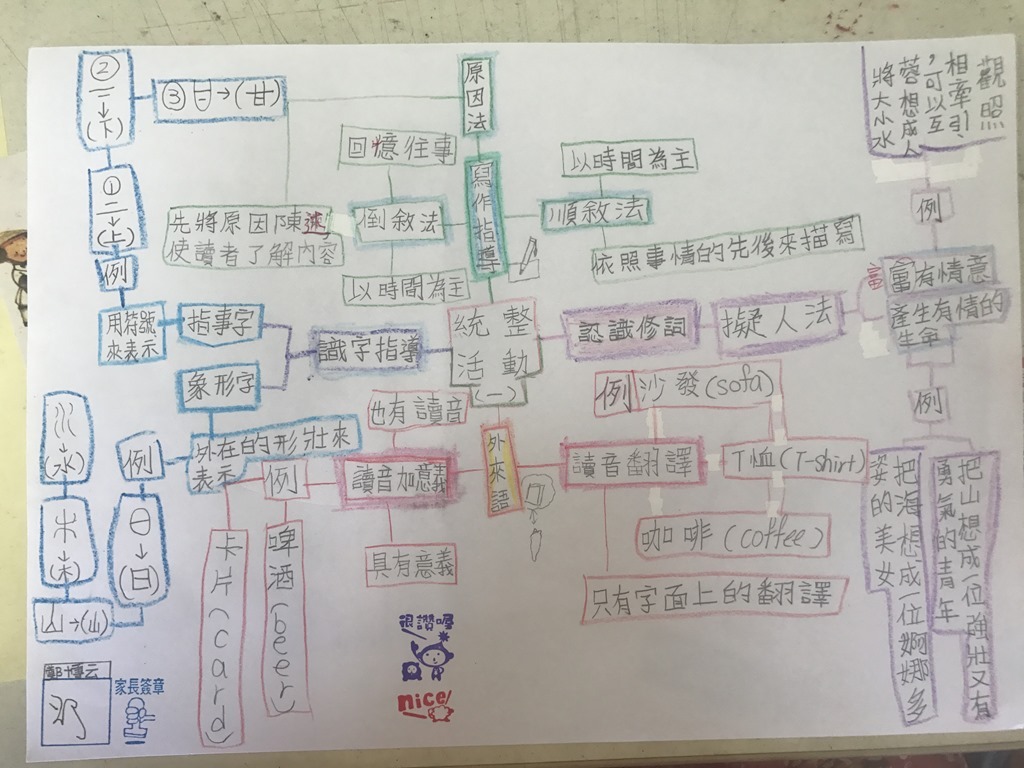 統整
活動
(一)
寫作指導
原因法
先將原因陳述
使讀者了解內容
③甘→(甘)
②一→(下)
①二→(上)
例
用符號
來表示
指事字
識字指導
象形字
外在的形壯來
表示
例
日→(日)
山→(山)
木→(木)
(水)
倒敘法
回憶往事
以時間為主
順敘法
以時間為主
依照事情的先後來描寫
認識修詞
擬人法
富
富有情意
產生有情的
生命
例
觀照
相牽引、
,可以互
蓉想成人
將大小水
例
把山想成一位強壯又有
勇氣的青年
把海想成一位婀娜多
姿的美女
外來語
讀音翻譯
例沙發(sofa)
T恤(T-shirt)
咖啡(coffee)
只有字面上的翻譯
讀音加意義
也有讀音
具有意義
例
啤酒(beer)
卡片(card)
很讚喔
nice!
家長簽章